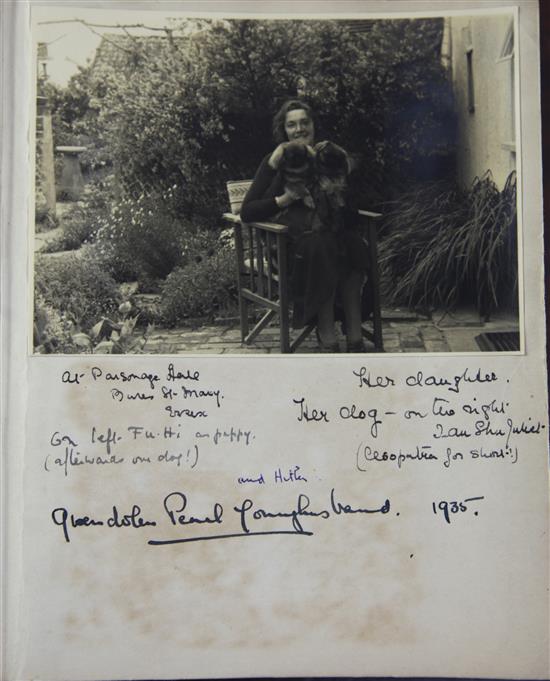 At Parsonage Hall
Bures St. Mary.
Essex
On left Fu-Hi as puppy.
(afterwards our dog!)
Her daughter.
Her dog - on the right
Tau Shu Juliet.
(Cleopatra for short!)
and Hitler
Gwendolen Pearl Younghusband. 1935.